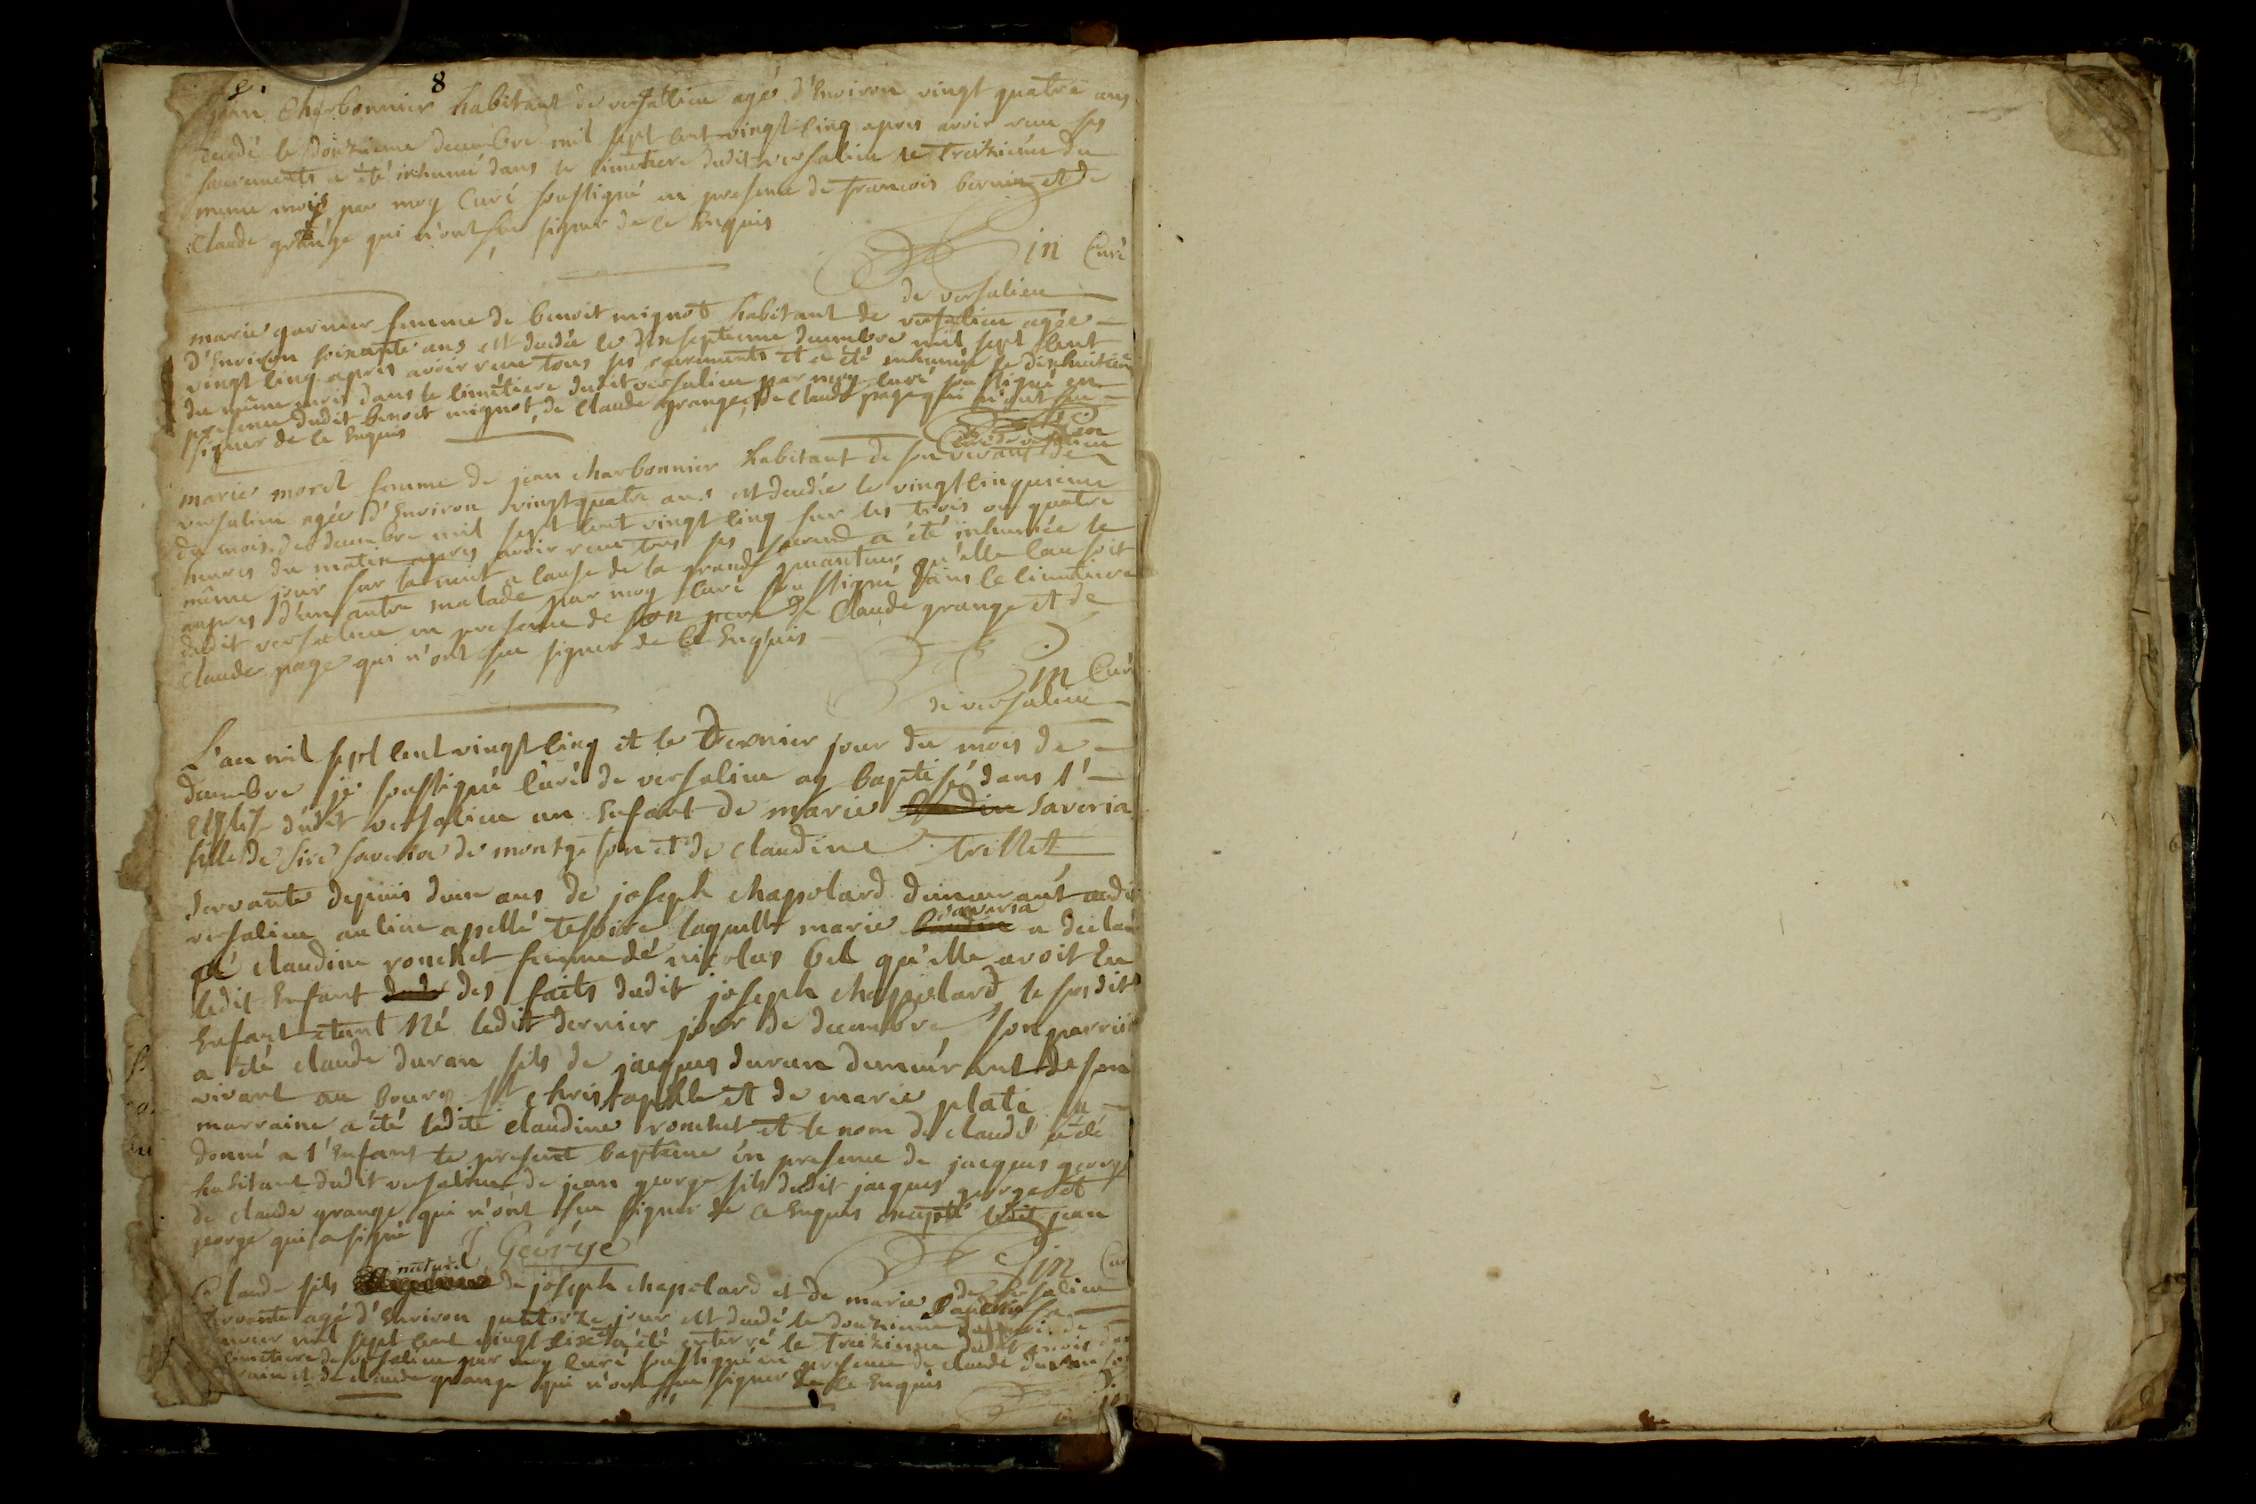 8
jean Charbonnier habitant de versalieu agé d'Environ vingt quatre ans
decedé le douzieme decembre mil sept cent vingt cinq apres avoir reçu ses
sacrements a été inhumé dans le cimetiere dudit versalieu le treizieme du
meme mois par moy Curé soussigné en presence de francois bernin et de
Claude grange qui n'ont sçu signer de ce Enquis
in Curé
de versalieu
marie garnier femme de benoit mignot habitant de versalieu agée
d'Environ soixante ans est decedée le dixseptieme decembre mil sept cent
vingt cinq apres avoir reçu tous ses sacrements et a été inhumée le dixhuitieme
du même mois dans le cimetiere dudit versalieu par moy curé soussigné en
presence dudit benoit mignot, de Claude grange, de claude page qui n'ont sçu
signer de ce Enquis
Curé de versalieu
marie morel femme de jean charbonnier habitant de son vivant de
versalieu agée d'Environ vingtquatre ans est decedée le vingtcinquieme
du mois de decembre mil sept cent vingt cinq sur les trois ou quatre
heures du matin apres avoir reçu tous ses sacrem a été inhumée le
même jour sur la nuit a cause de la grande puanteur qu'elle causoit
aupres d'un autre malade par moy Curé soussigné dans le cimetiere
dudit versalieu en presence de son pere de Claude grange et de
claude page qui n'ont sçu signer de ce Enquis
in Curé
de versalieu
L'an mil sept cent vingt cinq et le Dernier jour du mois de
decembre je soussigné curé de versalieu ay baptisé dans l'
Eglise dudit versalieu un Enfant de marie saveria
fille de sire saveria de montgeson et de claudine trillet
servante depuis deux ans de joseph chapolard demeurant audit
versalieu au lieu apellé tessoire laquelle marie saveria a declaré
a claudine ronchet femme de nicolas bel qu'elle avoit Eu
ledit Enfant des faits dudit joseph chapolard le susdit
Enfant etant Né ledit dernier jour de decembre son parrain
a été claude duran fils de jacques duran demeurant de son
vivant au bourg st christophle et de marie plati sa
marraine a été ladite claudine ronchet et le nom de claude a été
donné a l'Enfant le present baptême en presence de jacques george
habitant dudit versalieu de jean george fils dudit jacques george et
de claude grange qui n'ont sçu signer de ce Enquis excepté ledit jean
george qui a signé
J George
in Curé
de versalieu
Claude fils naturel de joseph chapolard et de marie
servante agé d'Environ quatorze jour est decedé le douzieme de
janvier mil sept cent vingt sixe a été enterré le treizieme dudit mois dans
cimetiere de versalieu par moy curé soussigné en presence de claude duran
et de claude grange qui n'ont sçu signer de ce Enquis